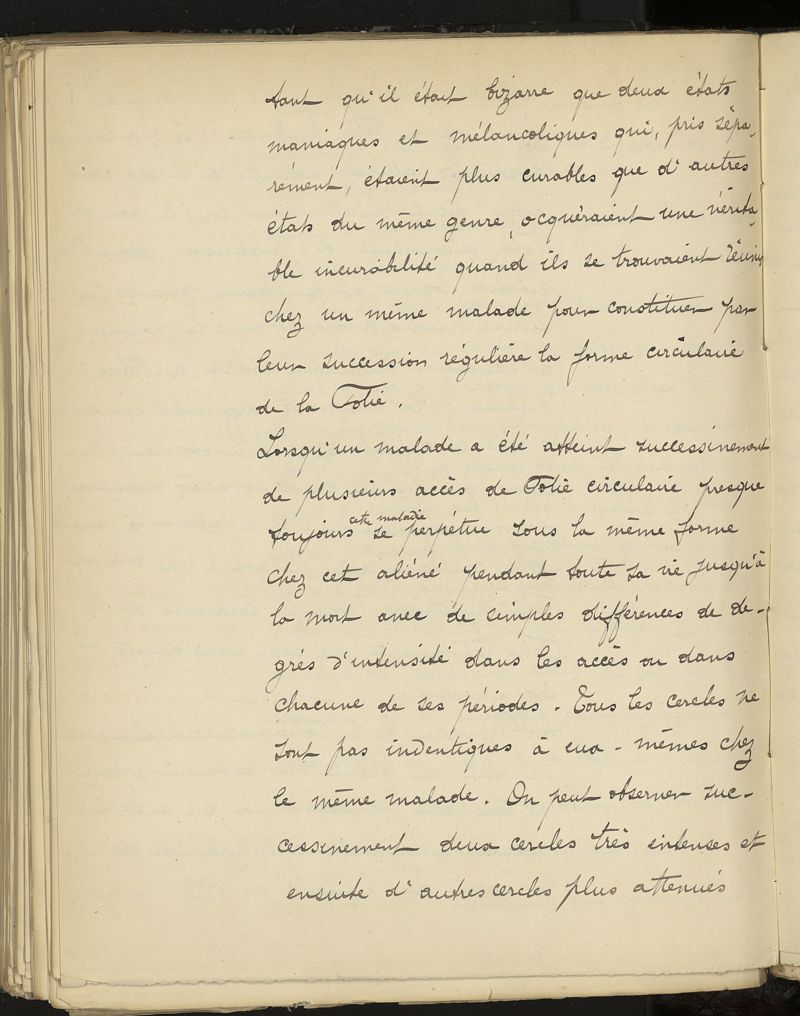 tant qu'il était bizarre que deux états
maniaques et mélancoliques qui, pris sépa-
rément, étaient plus curables que d'autres
états du même genre, acquéraient une vérita-
ble incurabilité quand ils se trouvaient réunis
chez un même malade pour constituer par
leur succession régulière la forme circulaire
de la Folie.
Lorsqu'un malade a été atteint successivement
de plusieurs accès de Folie circulaire presque
cette maladie
toujours se perpétue sous la même forme
chez cet aliéné pendant toute sa vie jusqu'à
la mort avec de simples différences de de-
grés d'intensité dans les accès ou dans
chacune de ses périodes. Tous les cercles ne
sont pas indentiques à eux-mêmes chez
le même malade. On peut observer suc-
cessivement deux cercles très intenses et
ensuite d'autres cercles plus attenués